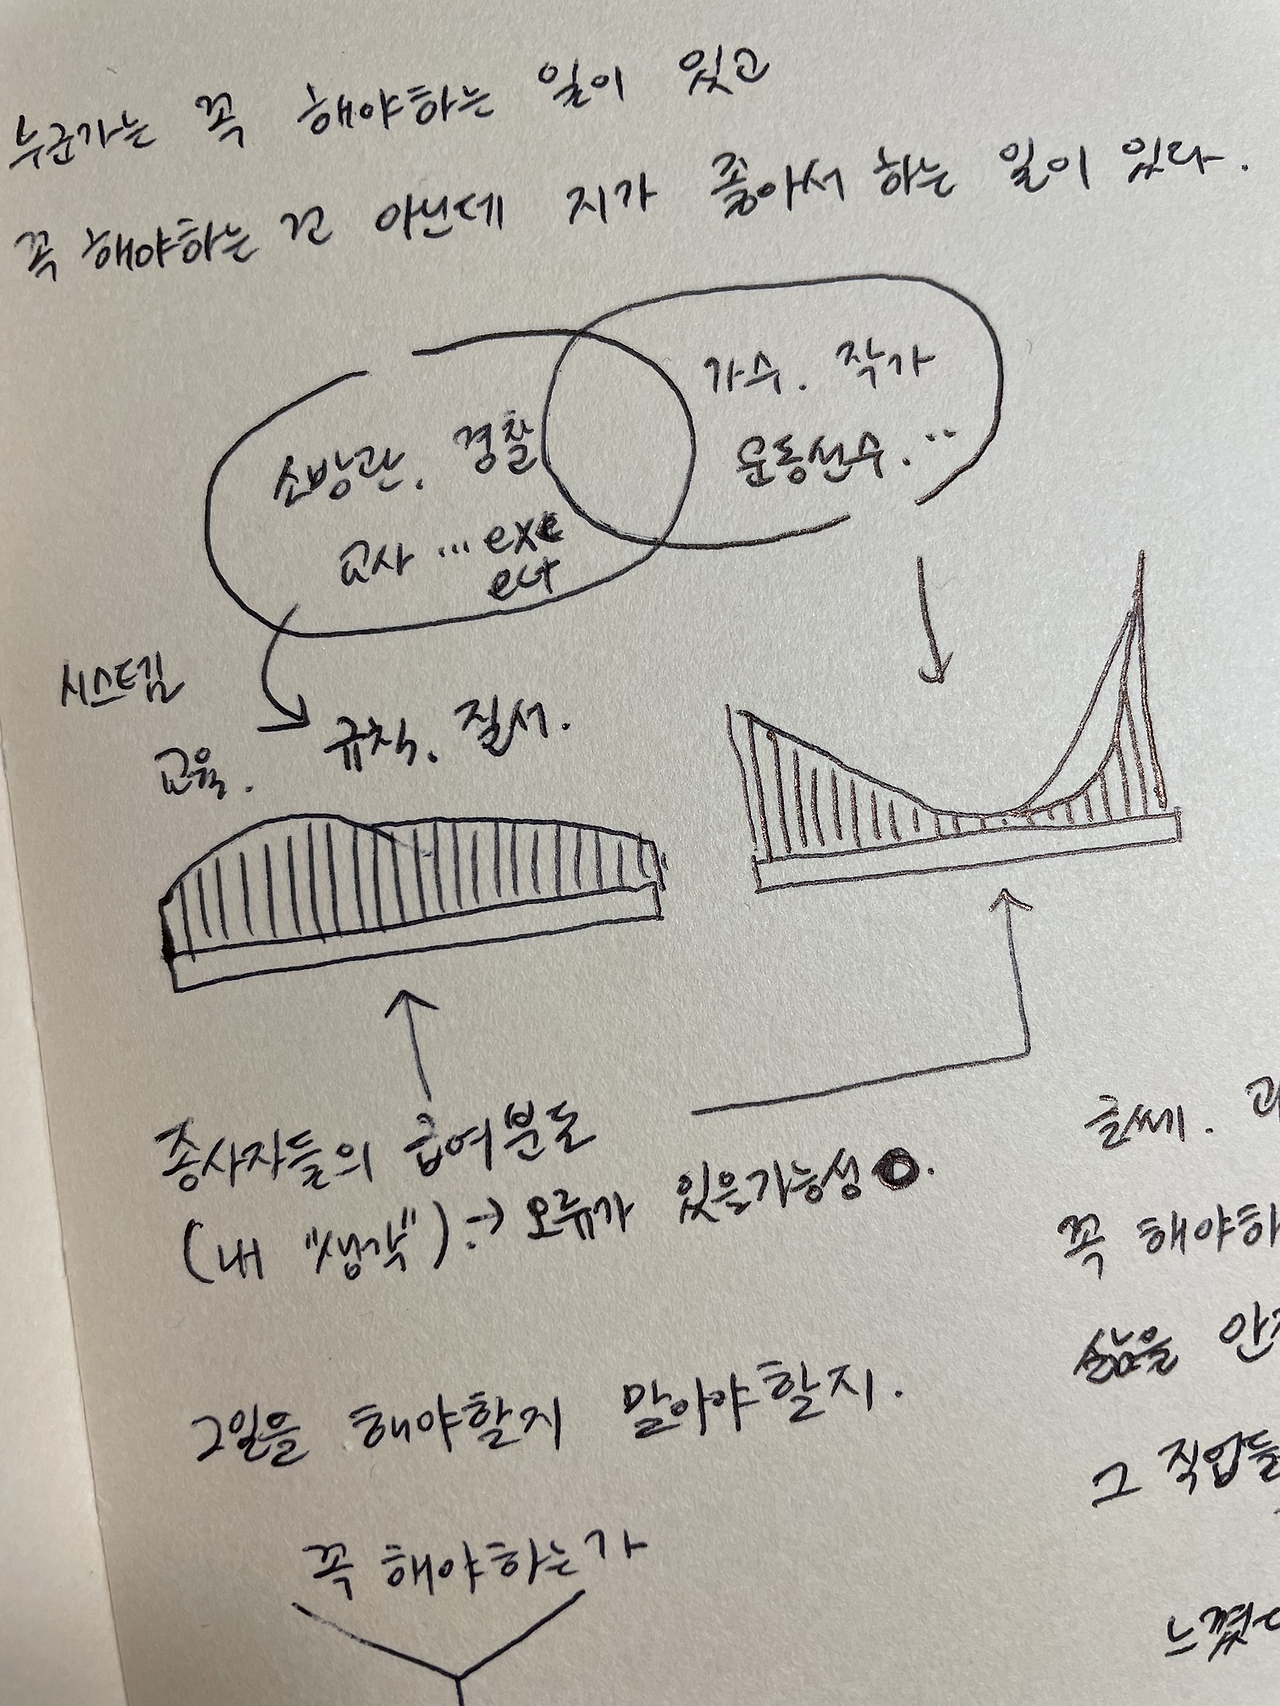 누군가는 꼭 해야하는 일이 있고
꼭 해야하는 건 아닌데 지가 좋아서 하는 일이 있다.
가수. 작가
운동선수...
소방관. 경찰
교사 ... exe
ect
시스템
교육.
규칙. 질서.
종사자들의 급여분도
(내 "생각") → 오류가 있을가능성 O.
그일을 해야할지 말아야할지.
꼭 해야하는가
글쎄.
꼭 해야하
삶을
그 직업들
느꼈